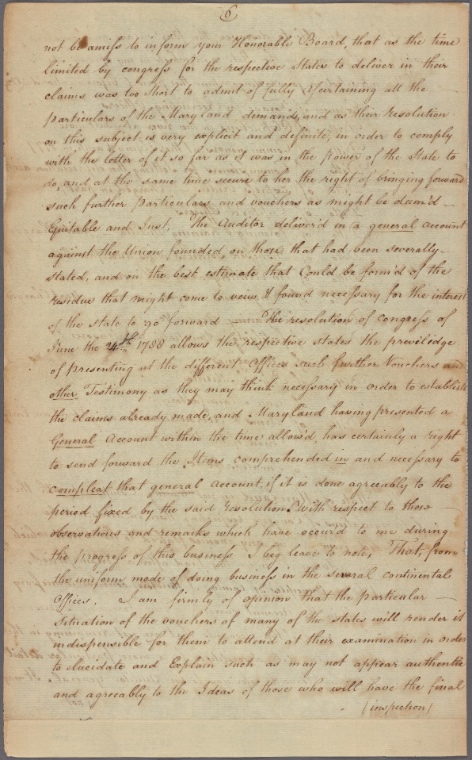 6
not be amiss to inform your Honorable Board, that as the time
limited by congress for the respective States to deliver in their
claims was too short to admit of fully ascertaining all the
particulars of the Maryland demands, and as their resolution
on this subject is very explicit and definite, in order to comply
with the letter of it so far as it was in the power of the State to
do, and at the same time secure to her the right of bringing forward
such further particulars and vouchers as might be deem'd
Equitable and Just. The Auditor deliver'd in a general account
against the Union founded, on those that had been severally
stated, and on the best estimate that could be form'd of the
residue that might come to view & found necessary for the interest
of the state to go forward — The resolution of congress of
June the 24th 1788 allows the respective states the priviledge
of presenting at the different Offices such further Vouchers and
other Testimony as they may think necessary in order to establish
the claims already made, and Maryland having presented a
General Account within the time allow'd, has certainly a right
to send forward the Items comprehended in and necessary to
compleat that general account, if it is done agreeably to the
period fixed by the said resolution. With respect to those
observations and remarks which have occur'd to me during
the progress of this business I beg leave to note, That, from
the uniform mode of doing business in the several continental
Offices. I am firmly of opinion that the particular
situation of the vouchers of many of the states will render it
indispensible for them to attend at their examination in order
to elucidate and Explain such as may not appear authentic
and agreeably to the Ideas of those who will have the final
(inspection)